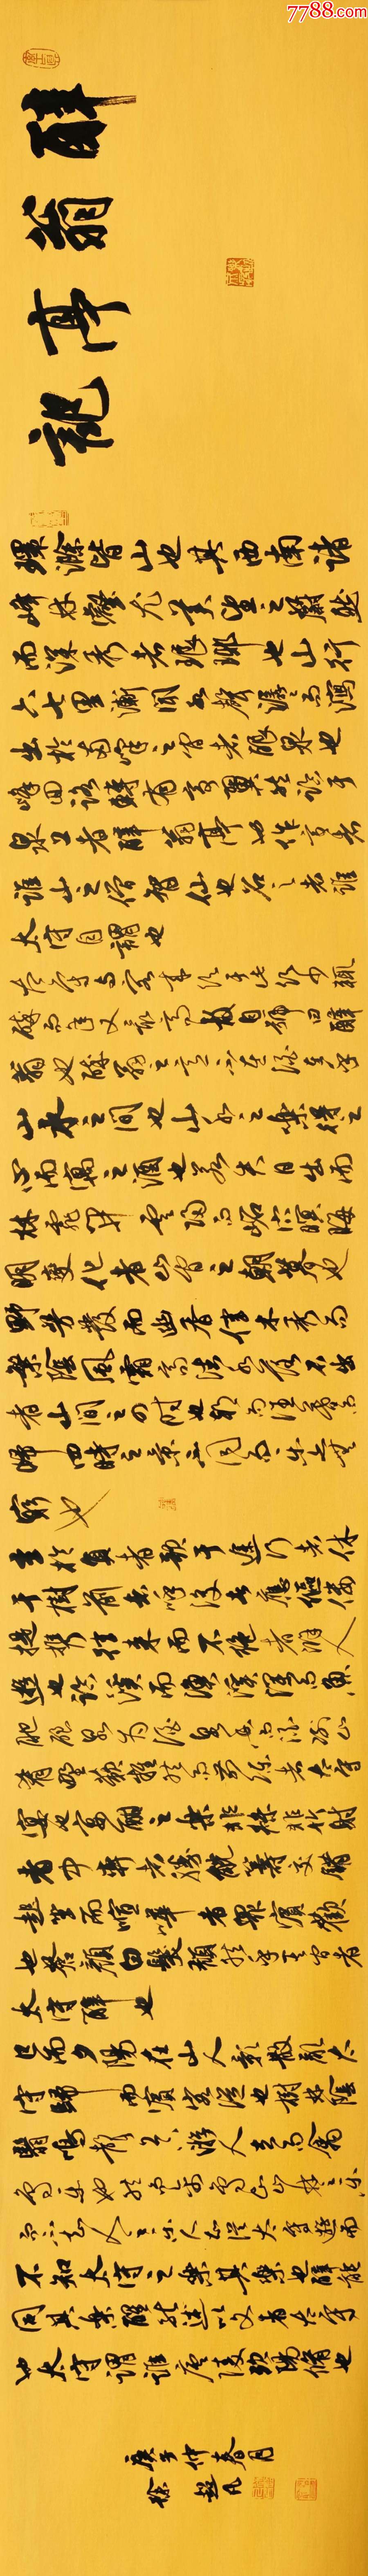 7788.com
醉翁亭記
環滁皆山也其西南諸
峰林壑尤美望之蔚然
而深秀者琅琊也山行
六七里漸聞水聲潺々而瀉
出於兩峰之間者釀泉也
峰回路轉有亭翼然臨于
泉上者醉翁亭也作亭者
誰山之僧智仙也名之者誰
太守自謂也
太守與客來飲于此飲少輒
醉而年又最高故自號曰醉
翁也醉翁之意不在酒在乎
山水之間也山水之樂得之
心而寓之酒也若夫日出而
林霏開雲歸而岩穴暝晦
明變化者山間之朝暮也
野芳發而幽香佳木秀而
繁陰風霜高潔水落石出
者山間之四時也朝而往暮而
歸四時之景不同而樂亦無
窮也
至於負者歌于途行者休
于樹前者呼後者應傴僂
提攜往來而不絕者滁人
遊也臨溪而漁溪深而魚
肥釀泉為酒泉香而酒洌山
肴野蔌雜然而前陳者太守
宴也宴酣之樂非絲非竹射
者中弈者勝觥籌交錯
起坐而喧嘩者眾賓歡
也蒼顏白髮頹然乎其間者
太守醉也
已而夕陽在山人影散亂太
守歸而賓客從也樹林陰
翳鳴聲上下遊人去而禽
鳥樂也然而禽鳥知山林之樂
而不知人之樂人知從太守遊而
不知太守之樂其樂也醉能
同其樂醒能述以文者太守
也太守謂誰廬陵歐陽脩也
庚子仲春月
徐超凡